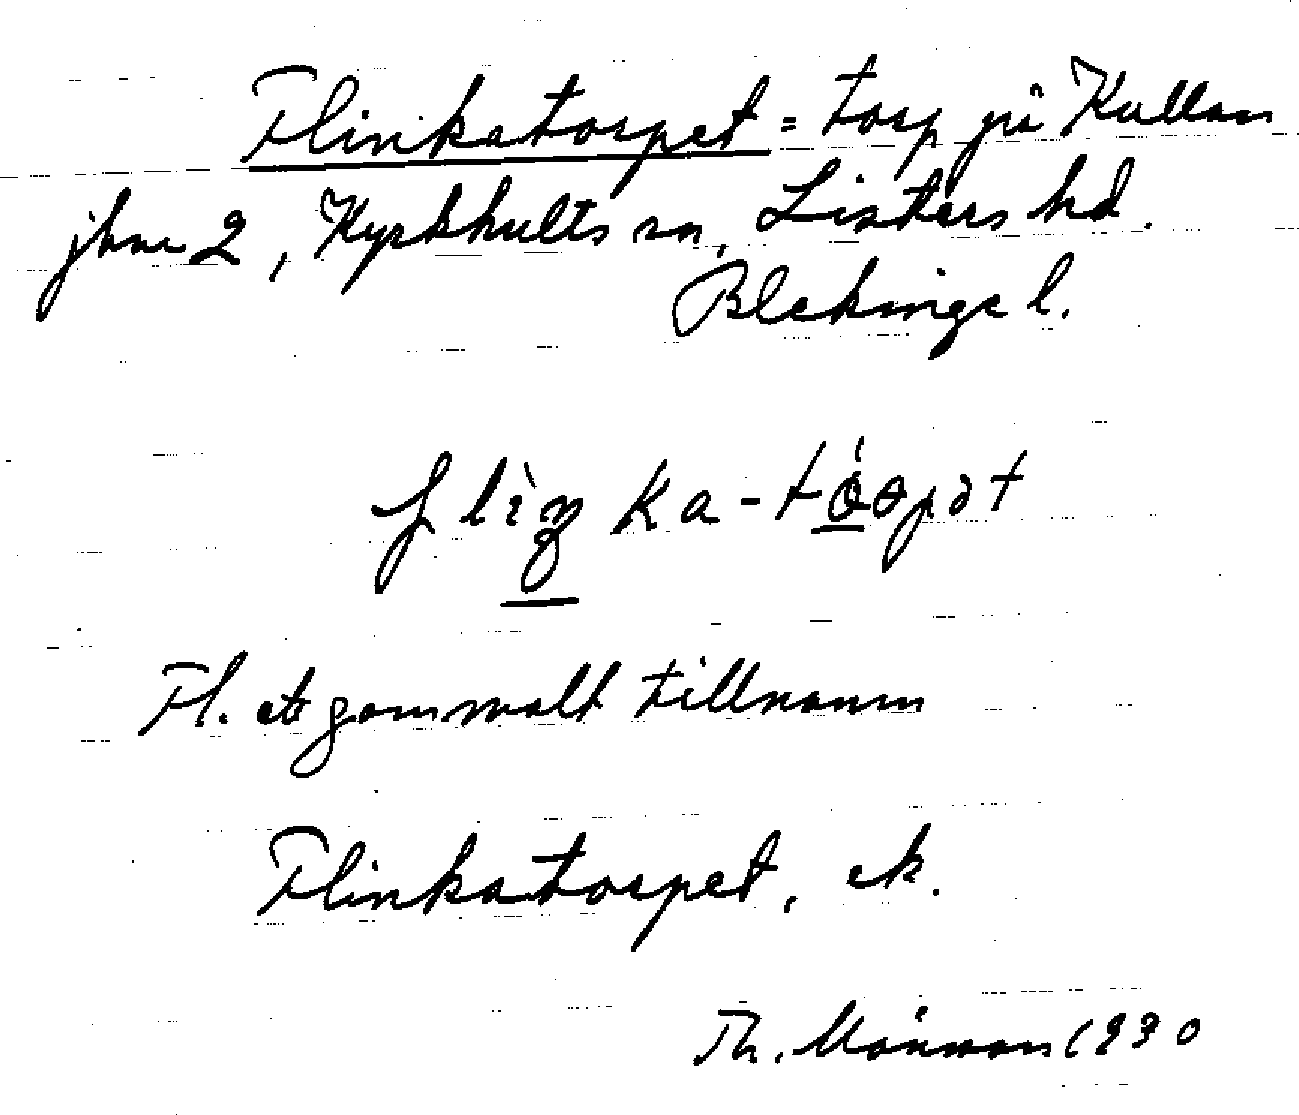 Flinkatorpet = torp på Kullan
jbnr 2, Kyrkhults sn, Listers hd.
Blekinge l.
flìŋka-tóɵpət
Fl. ett gammalt tillnamn
Flinkatorpet, ek.
Th. Månsson 1930